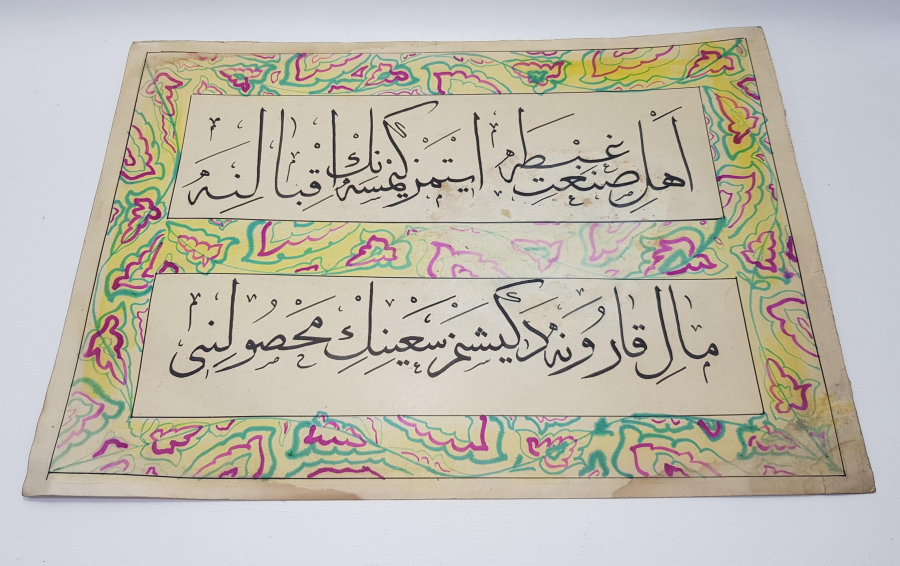 اَهْلِ صَنْعَت غِبْطَه اِيتْمَز كِيمْسَه‌نِكْ اِقْبَالِنَه
مَالِ قَارُونَه دَكِيشْمَزْ سَعْيِنِكْ مَحْصُولِنِى